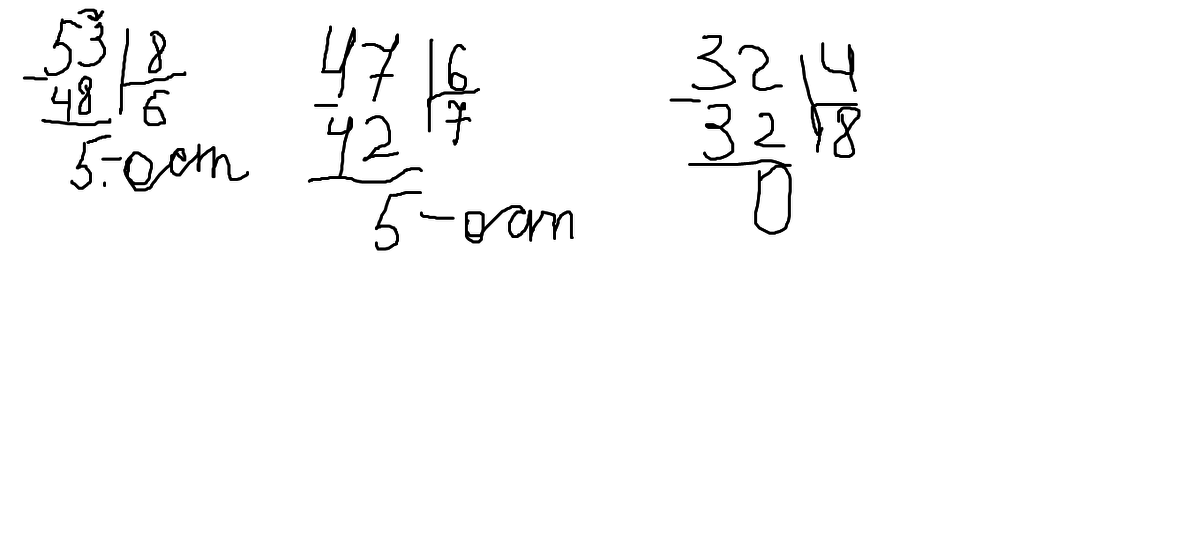 53 | 8
- 48 | 6
5 - ост
47 | 6
- 42 | 7
5 - ост
32 | 4
- 32 | 8
0